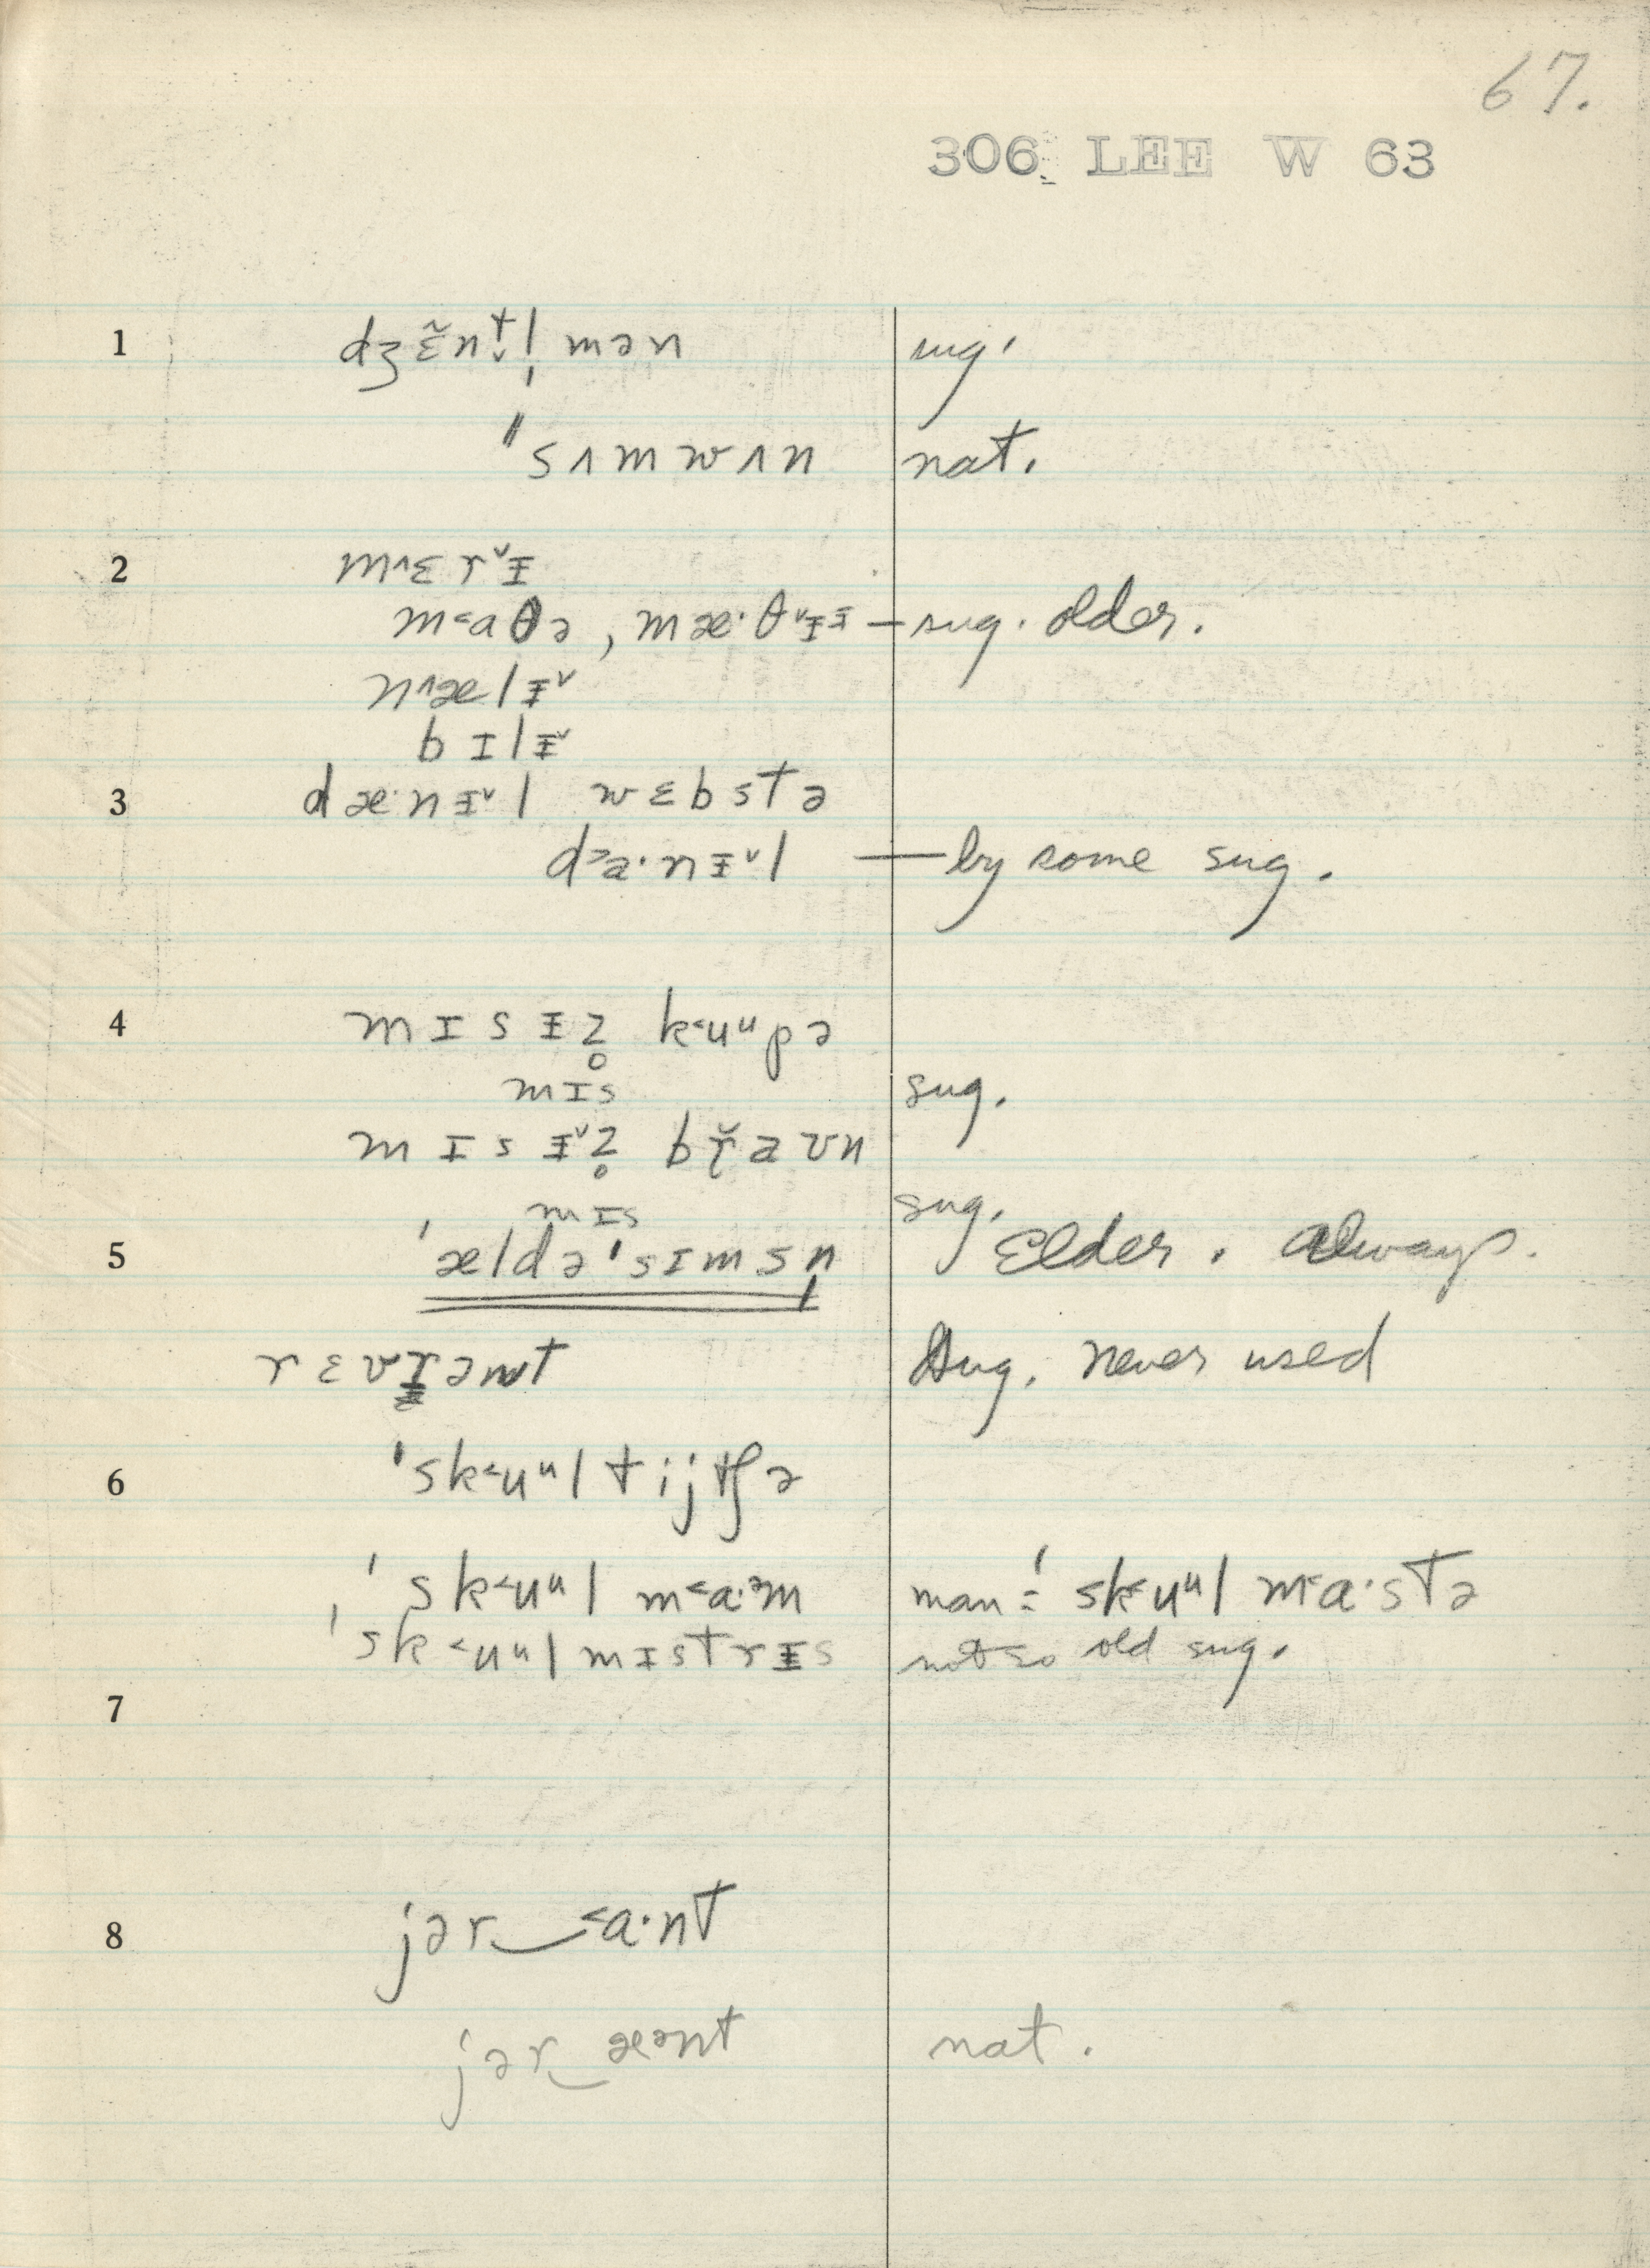 67.
306 LEE W 63
1 dʒɛ̃n̆t̬l̩ mən sug.
"sʌmwʌn nat.
2 m˄ɛrˇɨ
m˂aθə, mæ·θˇɨɨ — sug. older.
n˄ælɨˇ
bɪlɨˇ
3 dæ·nɨˇl wɛbstə
d˃a·nɨˇl — by some sug.
4 mɪsɨz̥ k˂uᵘpə
mɪs sug.
mɪsɨˇz̥ br̆aʊn
mɪs sug.
5 'ældə'sɪmsn̩ Elder. always.
rɛvɪ̵ənt Aug. never used
6 'sk˂uᵘltijtʃə
'sk˂uᵘl m˂a·ᵊm man = 'sk˂uᵘl m˂a·stə
'sk˂uᵘlmɪstrɨs not so old sug.
7
8 jər‿˂a·nt
jər‿æᵊnt nat.